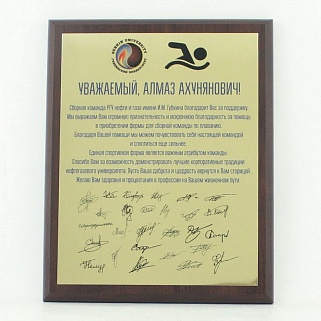 GUBKIN UNIVERSITY
УВАЖАЕМЫЙ, АЛМАЗ АХУНЯНОВИЧ!
Сборная команда РГУ нефти и газа имени И.М. Губкина благодарит Вас за поддержку.
Мы выражаем Вам огромную признательность и искреннюю благодарность за помощь
в приобретении формы для сборной команды по плаванию.
Благодаря Вашей помощи мы можем почувствовать себя настоящей командой
и сплотиться еще сильнее.
Единая спортивная форма является важным атрибутом команды.
Спасибо Вам за возможность демонстрировать лучшие корпоративные традиции
нефтегазового университета! Пусть Ваша доброта и щедрость вернутся к Вам сторицей.
Желаю Вам здоровья и процветания в профессии на Вашем жизненном пути.